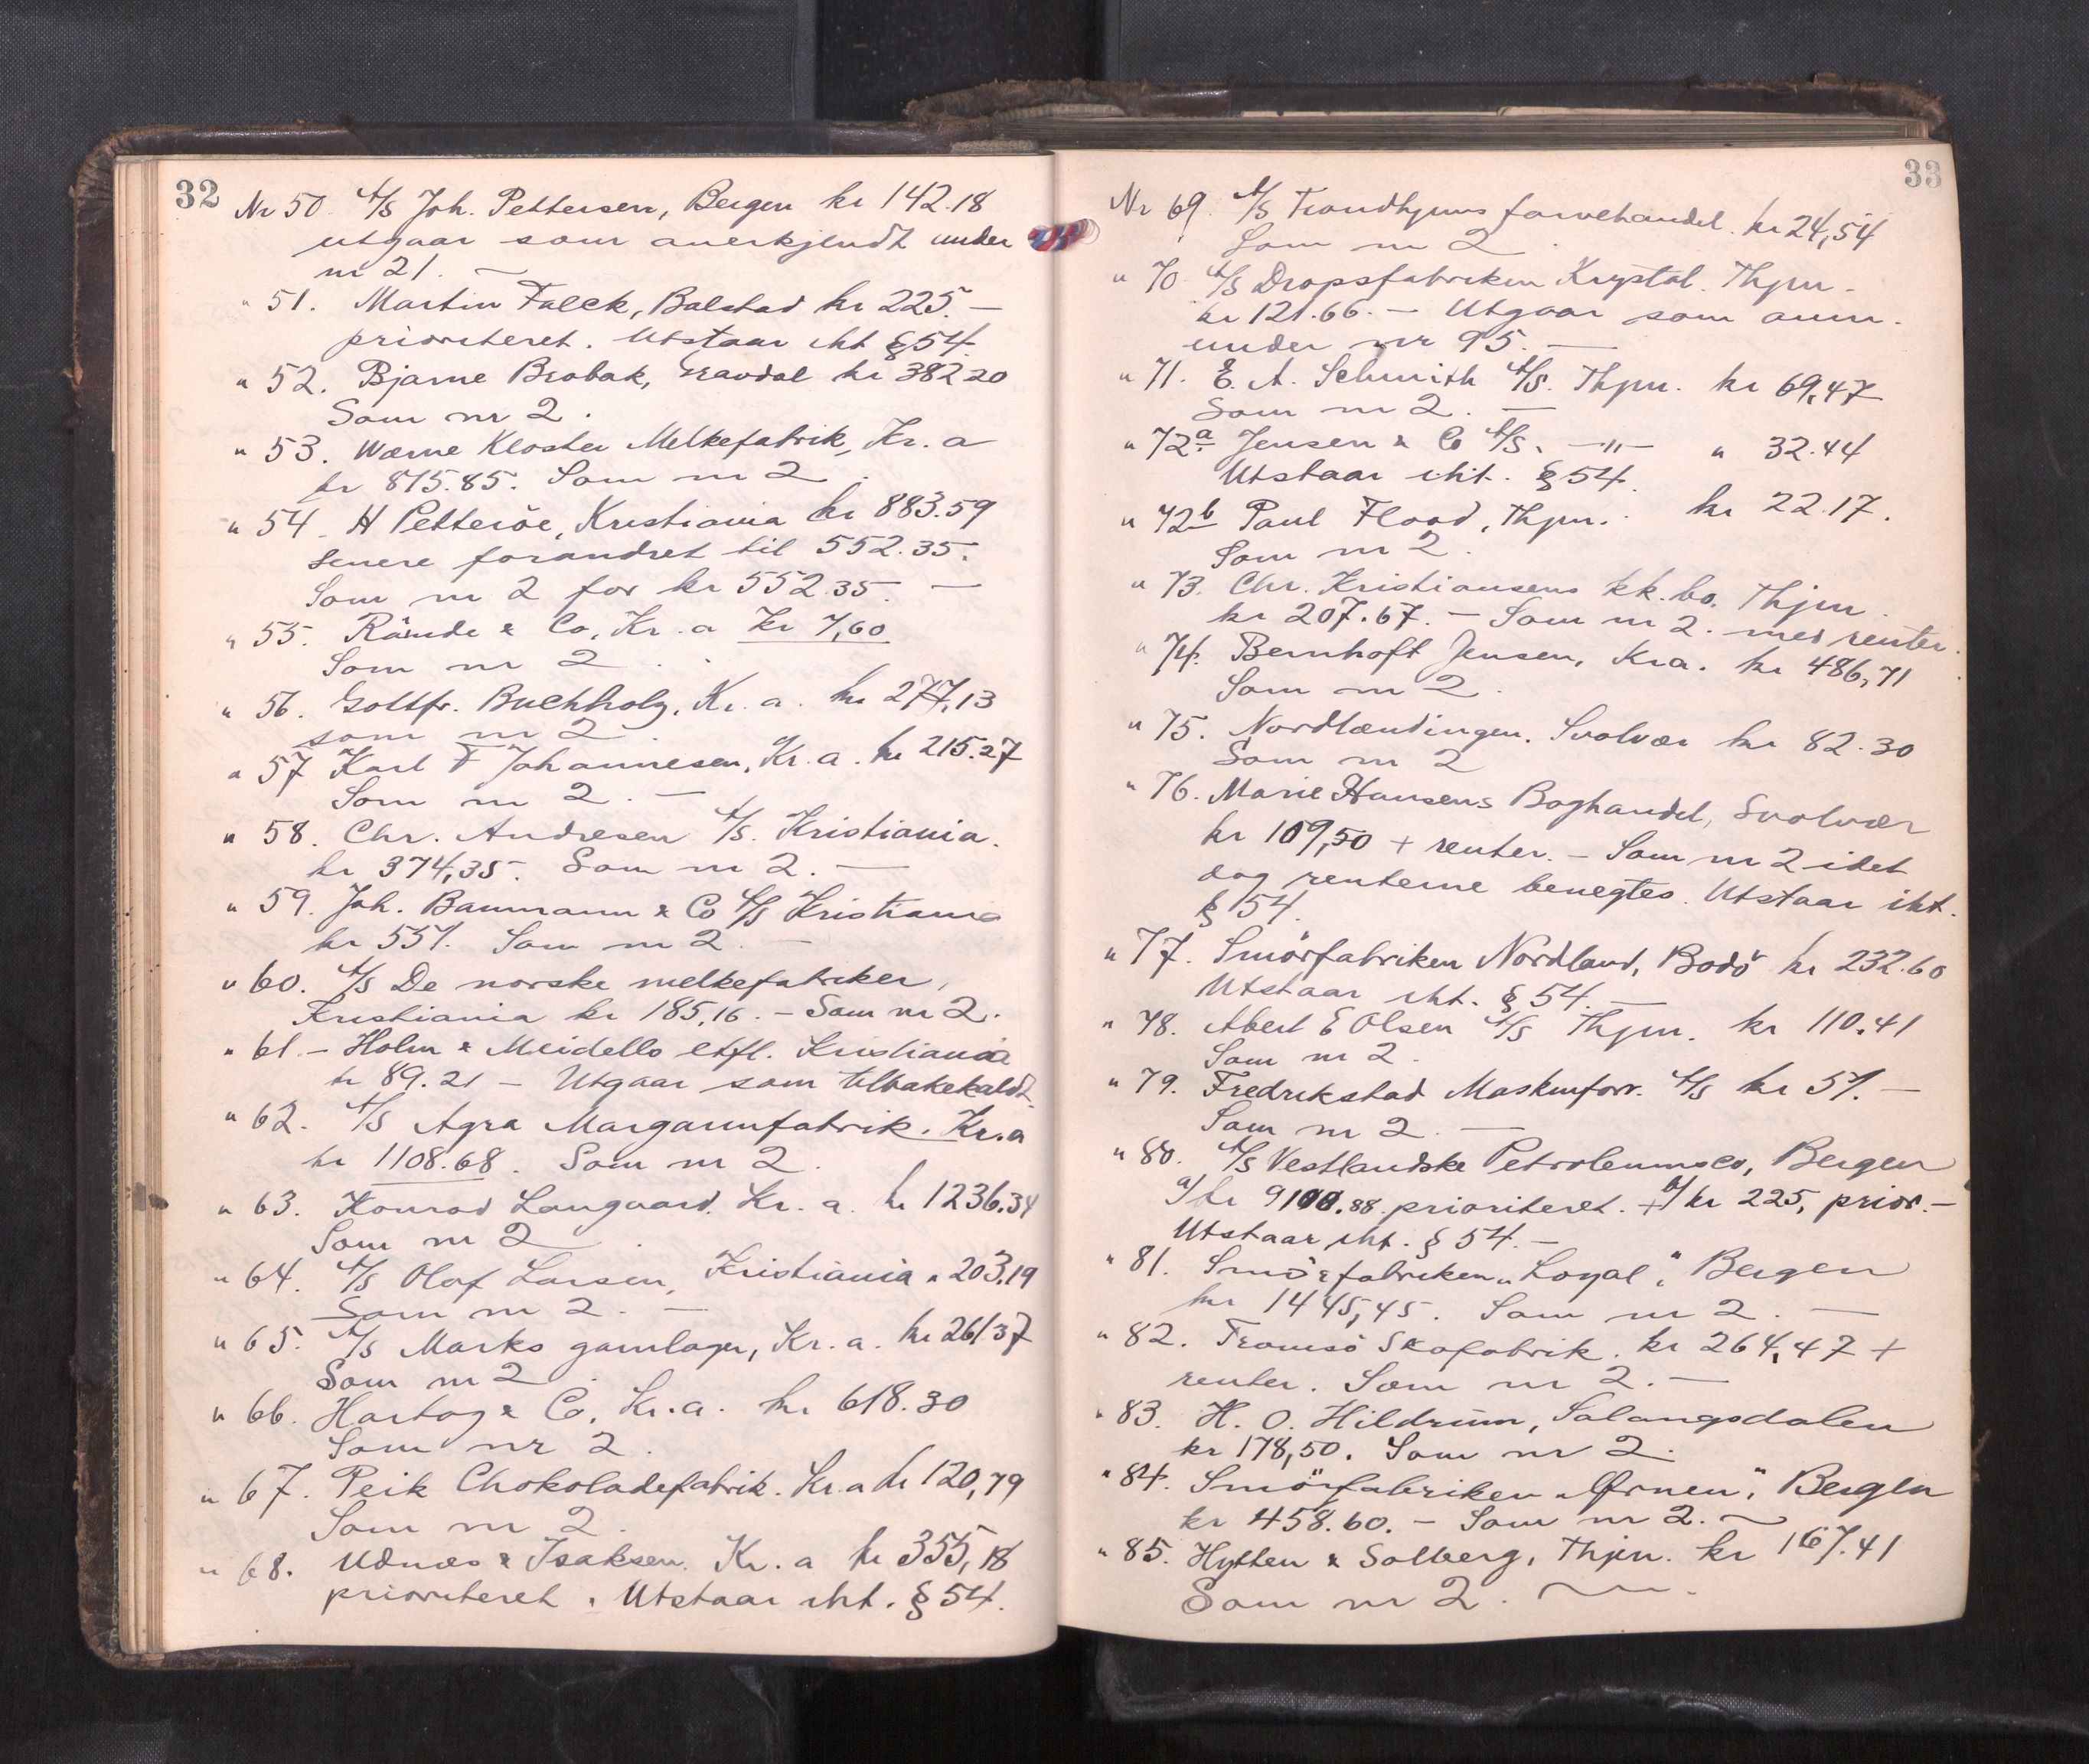 32
Nr 50. A/S Joh. Pettersen, Bergen kr 142.18
utgaar som anerkjendt under
nr 21. —
" 51. Martin Falck, Balstad kr 225.—
prioriteret. Utstaar iht § 54.
" 52. Bjarne Brobak, Gravdal kr 382.20
Som nr 2.
" 53. Værne Kloster Melkefabrik, Kr.a
kr 815.85. Som nr 2.
" 54. H Petteröe, Kristiania kr 883.59
senere forandret til 552.35.
Som nr 2 for kr 552.35. —
" 55. & Co, Kr.a Kr 7,60
Som nr 2.
" 56. Gottfr. Buchholz, Kr.a. kr 277,13
som nr 2.
" 57 Karl F Johannesen, Kr.a. kr 215.27
Som nr 2. —
" 58. Chr. Andresen A/S. Kristiania.
kr 374,35. Som nr 2. —
" 59. Joh. Baumann & Co A/S Kristiania
kr 557. Som nr 2. —
" 60. A/S De norske melkefabriker,
Kristiania kr 185,16. – Som nr 2.
" 61. – Holm & Meidells eftfl. Kristiania
kr 89.21 – Utgaar som tilbakekaldt.
" 62. A/S Agra Margarinfabrik. Kr.a
kr 1108.68. Som nr 2.
" 63. Konrad Langaard. Kr.a. kr 1236.34
Som nr 2.
" 64. A/S Olaf Larsen, Kristiania " 203.19
Som nr 2. —
" 65. A/S Marks garnlager, Kr.a. kr 261.37
Som nr 2.
" 66. Hartog & Co, Kr.a. kr 618.30
Som nr 2.
" 67. Peik Chokoladefabrik. Kr.a kr 120,79
Som nr 2.
" 68. Udnæs & Isaksen. Kr.a kr 355,18
prioriteret. Utstaar iht. § 54.
33
Nr 69. A/S Trondhjems farvehandel. kr 24,54
Som nr 2.
" 70 A/S Dropsfabriken Krystal. Thjm.
kr 121.66. – Utgaar som anm.
under nr 95. —
" 71. E. A. Schmith A/S. Thjm. kr 69,47
Som nr 2. —
" 72a Jensen & Co A/S. —"— " 32.44
Utstaar iht. § 54.
" 72b Paul Flood, Thjm. kr 22.17.
Som nr 2.
" 73. Chr. Kristiansens kk.bo. Thjm.
kr 207.67. – Som nr 2. med renter.
" 74. Bernhoft Jensen, Kra. kr 486,71
Som nr 2.
" 75. Nordlændingen. Svolvær kr 82.30
Som nr 2
" 76. Marie Hansens Boghandel, Svolvær
kr 109,50 + renter. – Som nr 2 idet
dog renterne benegtes. Utstaar iht.
§ 154.
" 77. Smörfabriken Nordland, Bodö kr 232.60
Utstaar iht. § 54. —
" 78. Abert E Olsen A/S Thjm. kr 110.41
Som nr 2.
" 79. Fredrikstad Maskinforr. A/S kr 57.—
Som nr 2. —
" 80. A/S Vestlandske Petroleumsco, Bergen
a/ kr 9100.88 prioriteret. + b/ kr 225, prior.—
Utstaar iht. § 54. —
" 81. Smörfabriken "Loyal", Bergen
kr 1445,45. Som nr 2. —
" 82. Tromsö Skofabrik. kr 264,47 +
renter. Som nr 2. —
" 83. H. O. Hildrum, Salangsdalen
kr 178,50. Som nr 2.
" 84. Smörfabriken "Ørnen", Bergen
kr 458.60. – Som nr 2. ~
" 85. Hytten & Solberg, Thjm. kr 167.41
Som nr 2.